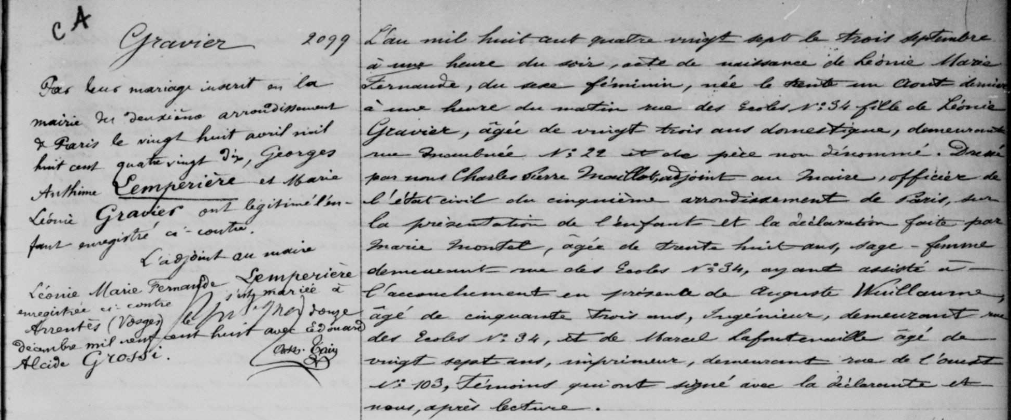 CA
Gravier 2099
Par leur mariage inscrit en la
mairie du deuxième arrondissement
de Paris le vingt huit avril mil
huit cent quatre vingt dix, Georges
Anthime Lemperière et Marie
Léonie Gravier ont légitimé l'en-
fant enregistré ci-contre.
L'adjoint au maire
Léonie Marie Fernande Lemperière
enregistrée ci-contre s'est mariée à
Arrentès (Vosges) le douze
décembre mil neuf cent huit avec Edouard
Alcide Grossi.
L'an mil huit cent quatre vingt sept le trois septembre
à une heure du soir, acte de naissance de Léonie Marie
Fernande, du sexe féminin, née le trente un Août dernier
à une heure du matin rue des Ecoles No 34 fille de Léonie
Gravier, âgée de vingt trois ans domestique, demeurant
rue No 22 et de père non dénommé. Dressé
par nous Charles Pierre Maillot, adjoint au Maire, officier de
l'état civil du cinquième arrondissement de Paris, sur
la présentation de l'enfant et la déclaration faite par
Marie Montel, âgée de trente huit ans, sage-femme
demeurant rue des Ecoles No 34, ayant assisté à
l'accouchement en présence de Auguste Wuillaume,
âgé de cinquante trois ans, Ingénieur, demeurant rue
des Ecoles No 34, et de Marcel Lafontenille âgé de
vingt sept ans, imprimeur, demeurant rue de l'ouest
No 103, Témoins qui ont signé avec la déclarante et
nous, après lecture.